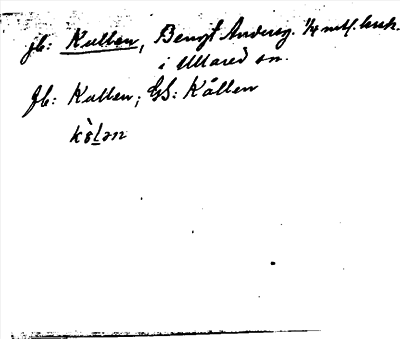 jb: Kullen, Bengt Andersz. 1/4 mtl. 
i Ullared sn.
Jb: Kullen; GS: Källen